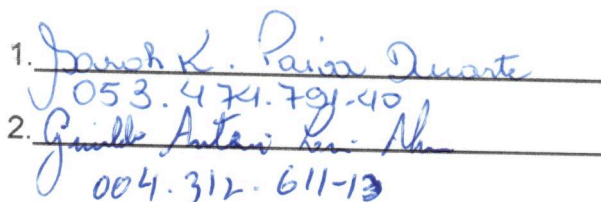 1. Sarah K. Paiva Duarte
053.474.791-40
2. Antoni
004.312.611-13